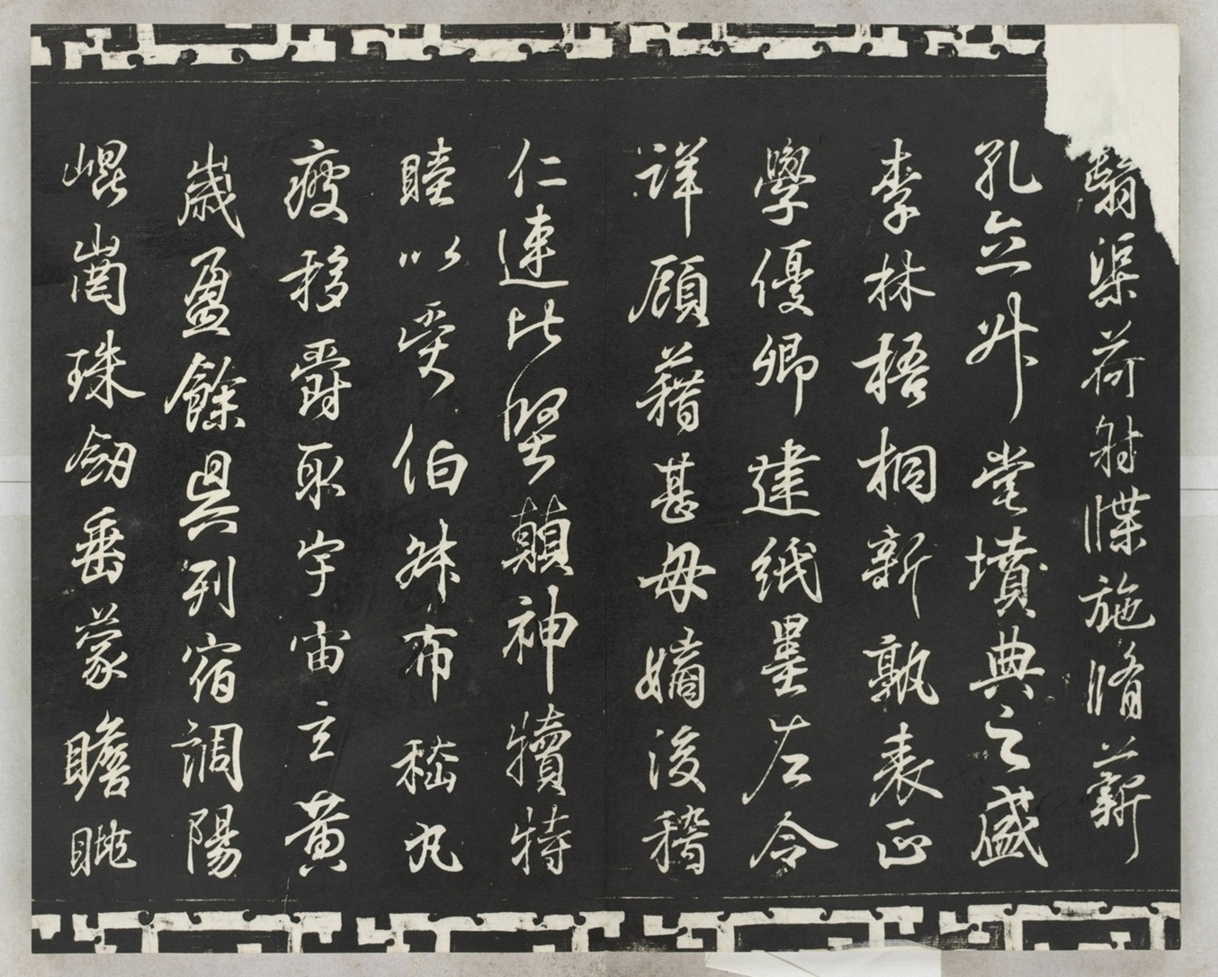 渠荷射牒施脩薪
孔立升堂墳典之盛
李林梧桐新孰表正
學優卿建紙墨左令
詳顧藉甚毋嫡後稽
仁連比堅顛神犢特
睦以受伯叔布嵇丸
疲移爵取宇宙玄黃
歲盈餘昃列宿調陽
崐崗珠劒垂蒙瞻眺